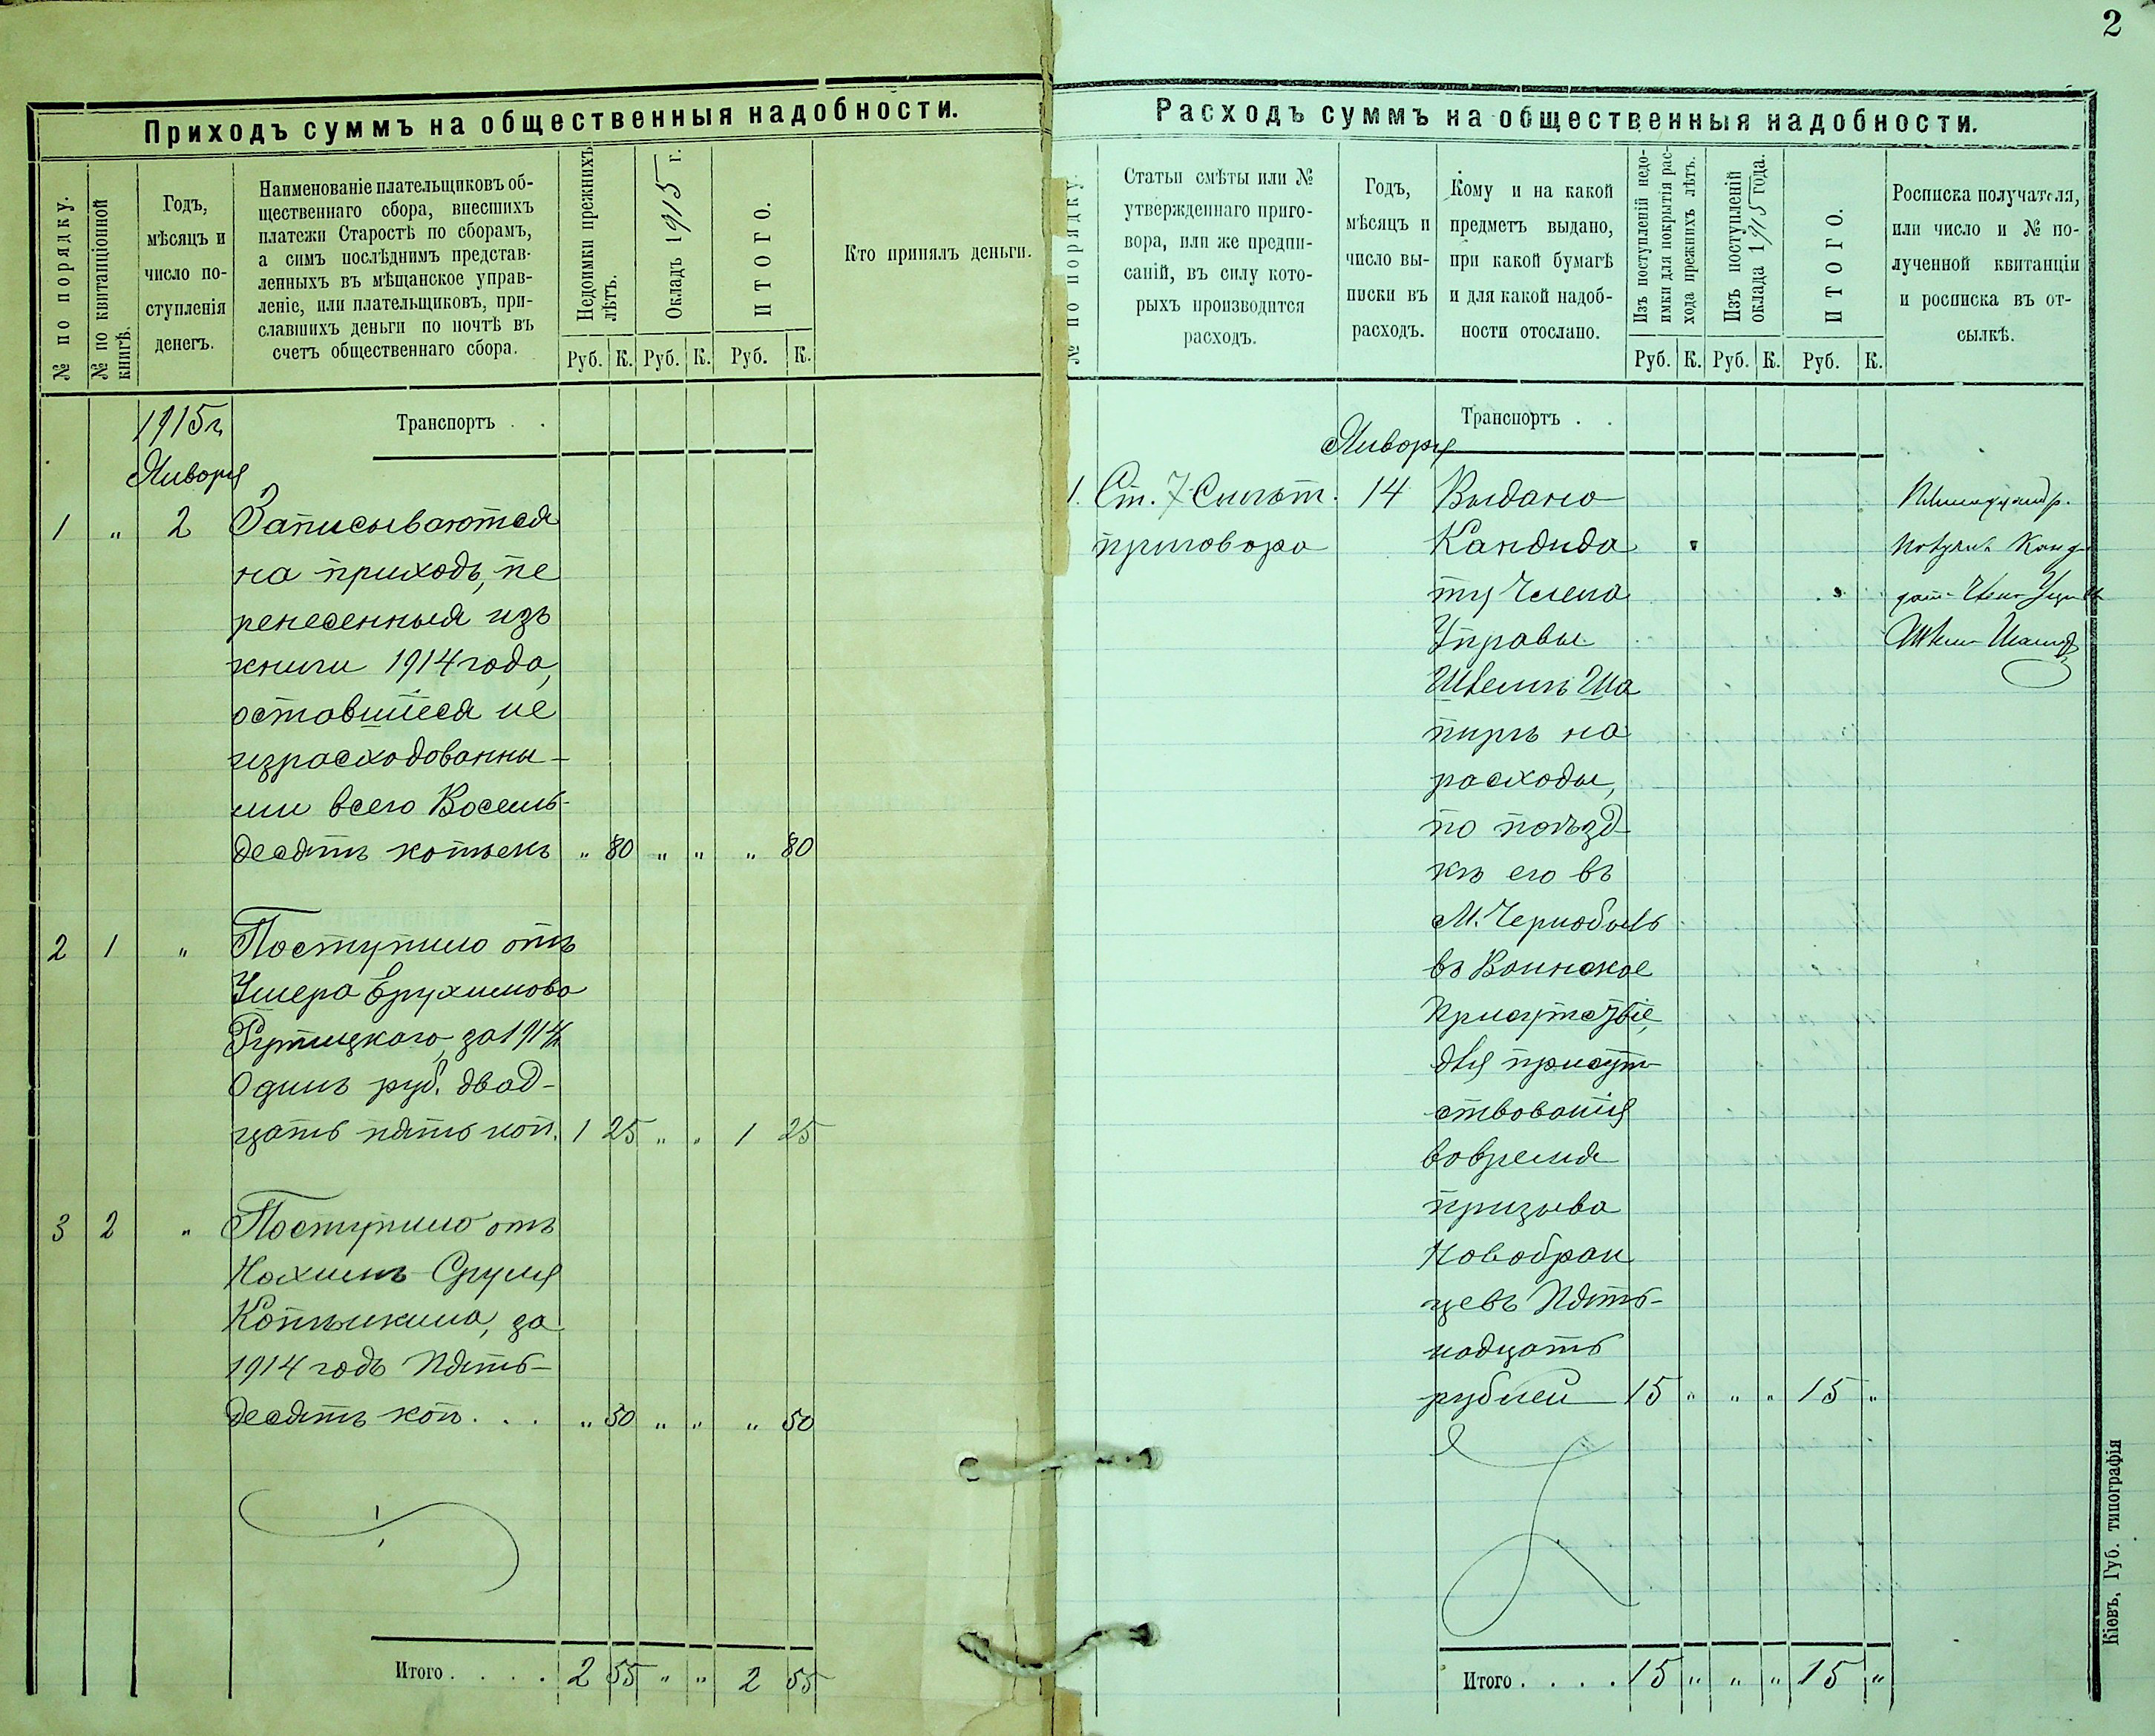 2
Приходъ суммъ на общественныя надобности.
№ по порядку.
№ по квитанціонной
книгѣ.
Годъ,
мѣсяцъ и
число по-
ступленія
денегъ.
Наименованіе плательщиковъ об-
щественнаго сбора, внесшихъ
платежи Старостѣ по сборамъ,
а симъ послѣднимъ представ-
ленныхъ въ мѣщанское управ-
леніе, или плательщиковъ, при-
славшихъ деньги по почтѣ въ
счетъ общественнаго сбора.
Недоимки прежнихъ
лѣтъ.
Окладъ 1915 г.
ИТОГО.
Кто принялъ деньги.
Руб. К. Руб. К. Руб. К.
1915 г. Транспортъ . .
Января
1 „ 2 Записываются
на приходъ, пе
ренесенныя изъ
книги 1914 года,
оставшіеся не
израсходованны-
ми всего Восемь-
десятъ копѣекъ „ 80 „ „ „ 80
2 1 „ Поступило отъ
Умера Ерухимова
за 1914
Одинъ руб. двад-
цать пять коп. 1 25 „ „ 1 25
3 2 „ Поступило отъ
Нахимъ Сруля
за
1914 годъ Пять-
десятъ коп. . . „ 50 „ „ „ 50
Итого . . . . 2 55 „ „ 2 55
Расходъ суммъ на общественныя надобности.
№ по порядку.
Статьи смѣты или №
утвержденнаго приго-
вора, или же предпи-
саній, въ силу кото-
рыхъ производится
расходъ.
Годъ,
мѣсяцъ и
число вы-
писки въ
расходъ.
Кому и на какой
предметъ выдано,
при какой бумагѣ
и для какой надоб-
ности отослано.
Изъ поступленій недо-
имки для покрытія рас-
хода прежнихъ лѣтъ.
Изъ поступленій
оклада 1915 года.
ИТОГО.
Росписка получателя,
или число и № по-
лученной квитанціи
и росписка въ от-
сылкѣ.
Руб. К. Руб. К. Руб. К.
Транспортъ . .
Января
1. Ст. 7 Смѣт. 14 Выдано
приговора Кандида
ту Члена
Управы
Шлемѣ Ша
пирѣ на
расходы,
по поѣзд-
кѣ его въ
М. Чернобыль
въ Воинское
Присутствіе,
для присут-
ствованія
вовремя
призыва
Новобран
цевъ Пять-
надцать
рублей 15 „ „ „ 15 „
получилъ Канд-
Итого . . . . 15 „ „ „ 15 „
Кіевъ, Губ. типографія